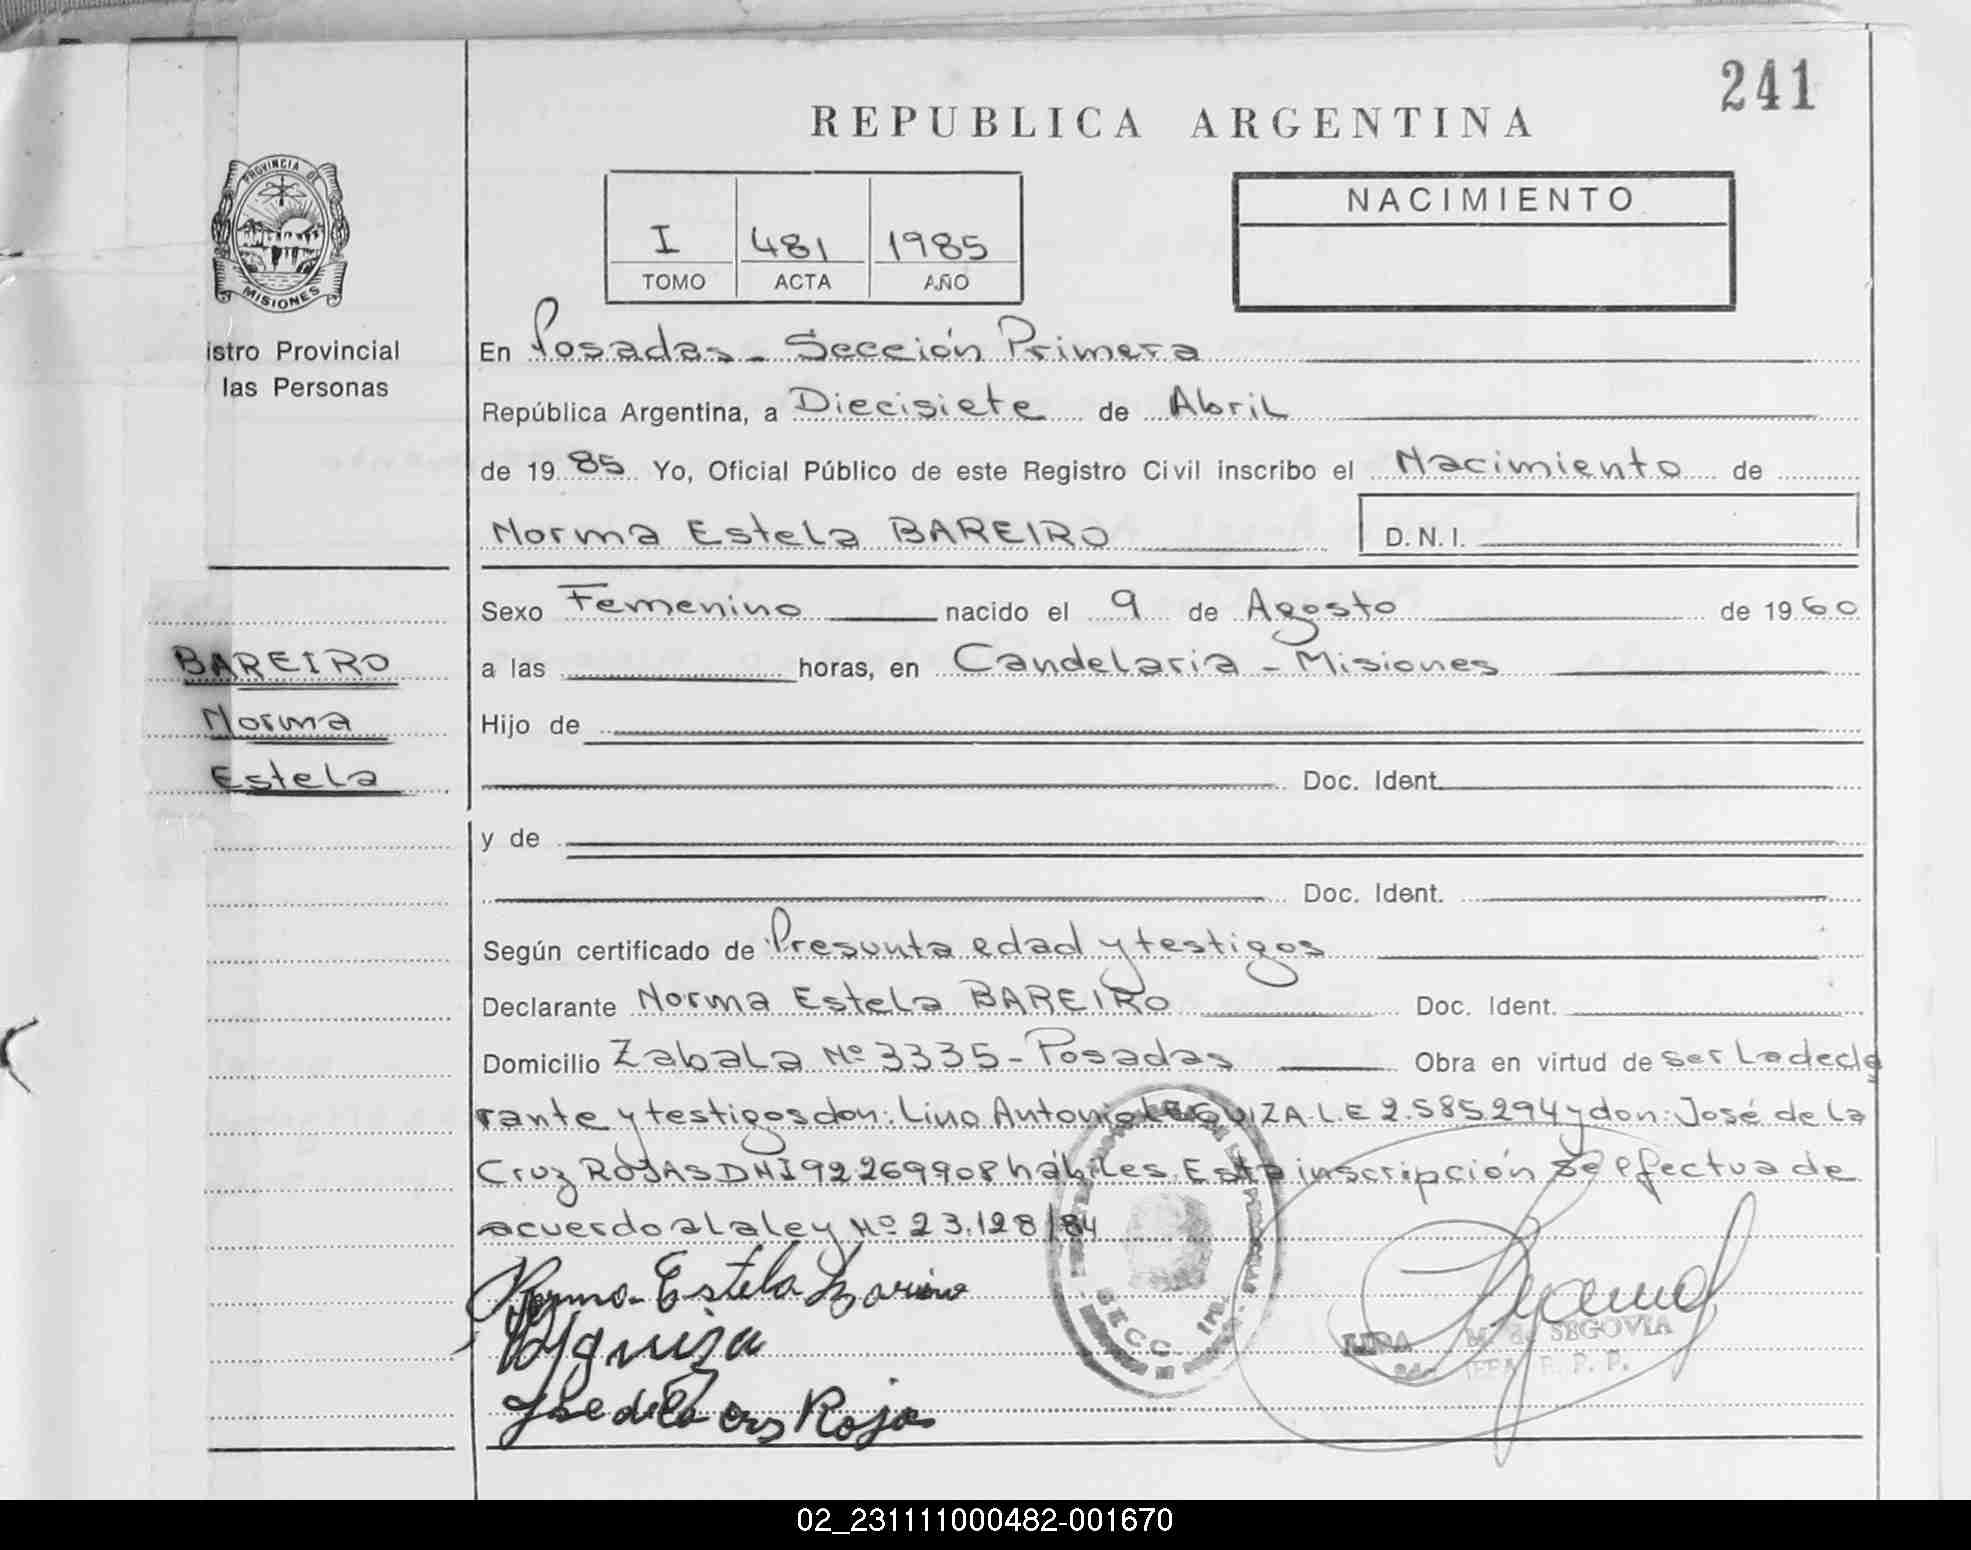 241
REPUBLICA ARGENTINA
PROVINCIA DE
MISIONES
istro Provincial
las Personas
I 481 1985
TOMO ACTA AÑO
NACIMIENTO
En Posadas - Sección Primera
República Argentina, a Diecisiete de Abril
de 1985 Yo, Oficial Público de este Registro Civil inscribo el Nacimiento de
Norma Estela BAREIRO D.N.I.
Sexo Femenino nacido el 9 de Agosto de 1960
BAREIRO
Norma
Estela
a las horas, en Candelaria - Misiones
Hijo de
Doc. Ident.
y de
Doc. Ident.
Según certificado de Presunta edad y testigos
Declarante Norma Estela BAREIRO Doc. Ident.
Domicilio Zabala Nº 3335 - Posadas Obra en virtud de ser la decla
rante y testigos don: Lino Antonio LEGUIZA L.E 2.585.294 y don: José de la
Cruz ROJAS DNI 92269908 hábiles. Esta inscripción se efectua de
acuerdo a la ley Nº 23.128/84
Norma Estela Bariero
José de la Crus Rojas
SECC. 1ra.
M. de SEGOVIA
02_231111000482-001670